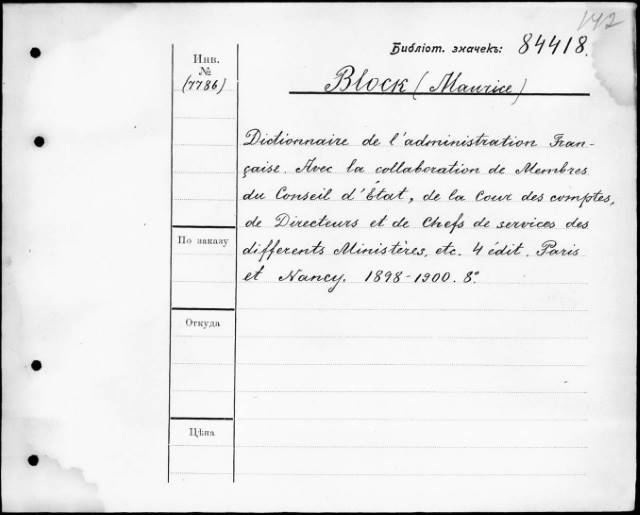 142
Библіот. значекъ: 84418.
Инв.
№
(7786)
Block (Maurice)
Dictionnaire de l'administration Fran-
çaise. Avec la collaboration de Membres
du Conseil d'État, de la Cour des comptes,
de Directeurs et de Chefs de services des
differents Ministères, etc. 4 édit. Paris
et Nancy. 1898-1900. 8°
По заказу
Откуда
Цѣна